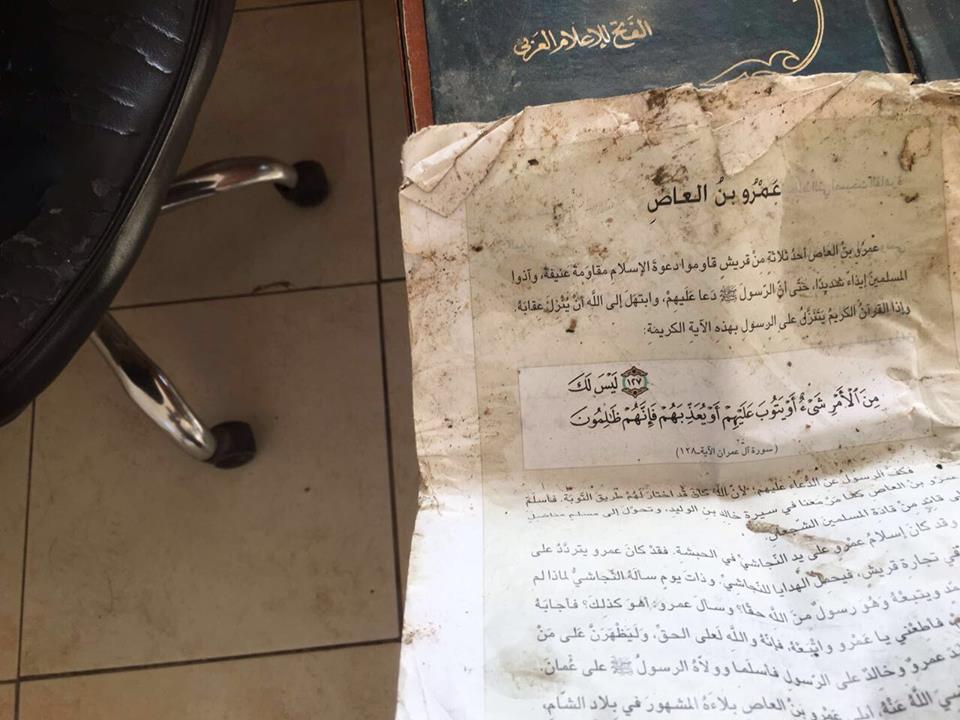 الفتح للإعلام العربي
عَمْرُو بنُ العاصِ
عمرُو بنُ العاصِ أحدُ ثلاثةٍ مِنْ قريشٍ قاوموا دعوةَ الإسلامِ مقاومةً عنيفةً، وآذوا
المسلمينَ إيذاءً شديدًا، حتَّى أنَّ الرّسولَ ﷺ دَعا عَلَيهِمْ، وابتهَلَ إلى اللَّه أنْ يُنْزِلَ عقابَهُ.
وإذا القرآنُ الكريمُ يَتَنَزَّلُ على الرسولِ بهذه الآيةِ الكريمةِ:
﴿١٢٧﴾ لَيْسَ لَكَ
مِنَ ٱلْأَمْرِ شَىْءٌ أَوْ يَتُوبَ عَلَيْهِمْ أَوْ يُعَذِّبَهُمْ فَإِنَّهُمْ ظَٰلِمُونَ
(سورة آل عمران الآية-١٢٨)
فكفَّ الرسولُ عن الدُّعاءِ عَلَيهِم، لأنَّ اللَّهَ كانَ قد اختارَ لَهُمْ طريقَ التَّوبَةِ. فأسلَمَ
عمرو بن العاص كما مَرَّ مَعَنا في سيرةِ خالدِ بنِ الوليدِ، وتحوَّلَ إلى مسلمٍ مناضلٍ
قائدٍ مِن قادةِ المسلمينَ الشّجعانِ.
وقد كانَ إسلامُ عمرٍو على يدِ النّجاشيِّ في الحبشةِ. فقدْ كانَ عمرو يتردَّدُ على
في تجارةِ قريشٍ، فيحملُ الهدايا للنّجاشيِّ. وذات يومٍ سألَهُ النّجاشيُّ لماذا لم
ويتبعْهُ وهُوَ رسولٌ مِنَ اللَّهِ حقًّا؟ وسألَ عمرو: أهوَ كذلك؟ فأجابَهُ
فأطعْني يا عَمْرو واتَّبِعْهُ، فإنَّهُ واللَّهِ لَعلى الحقِّ، ولَيَظْهَرَنَّ على مَنْ
عمرو وخالدٌ على الرّسولِ فأسلَما وولّاهُ الرسولُ ﷺ على عُمانَ.
اللَّهُ عَنْهُ، أبلى عَمْرو بنُ العاصِ بلاءَهُ المشهورَ في بلادِ الشّامِ،